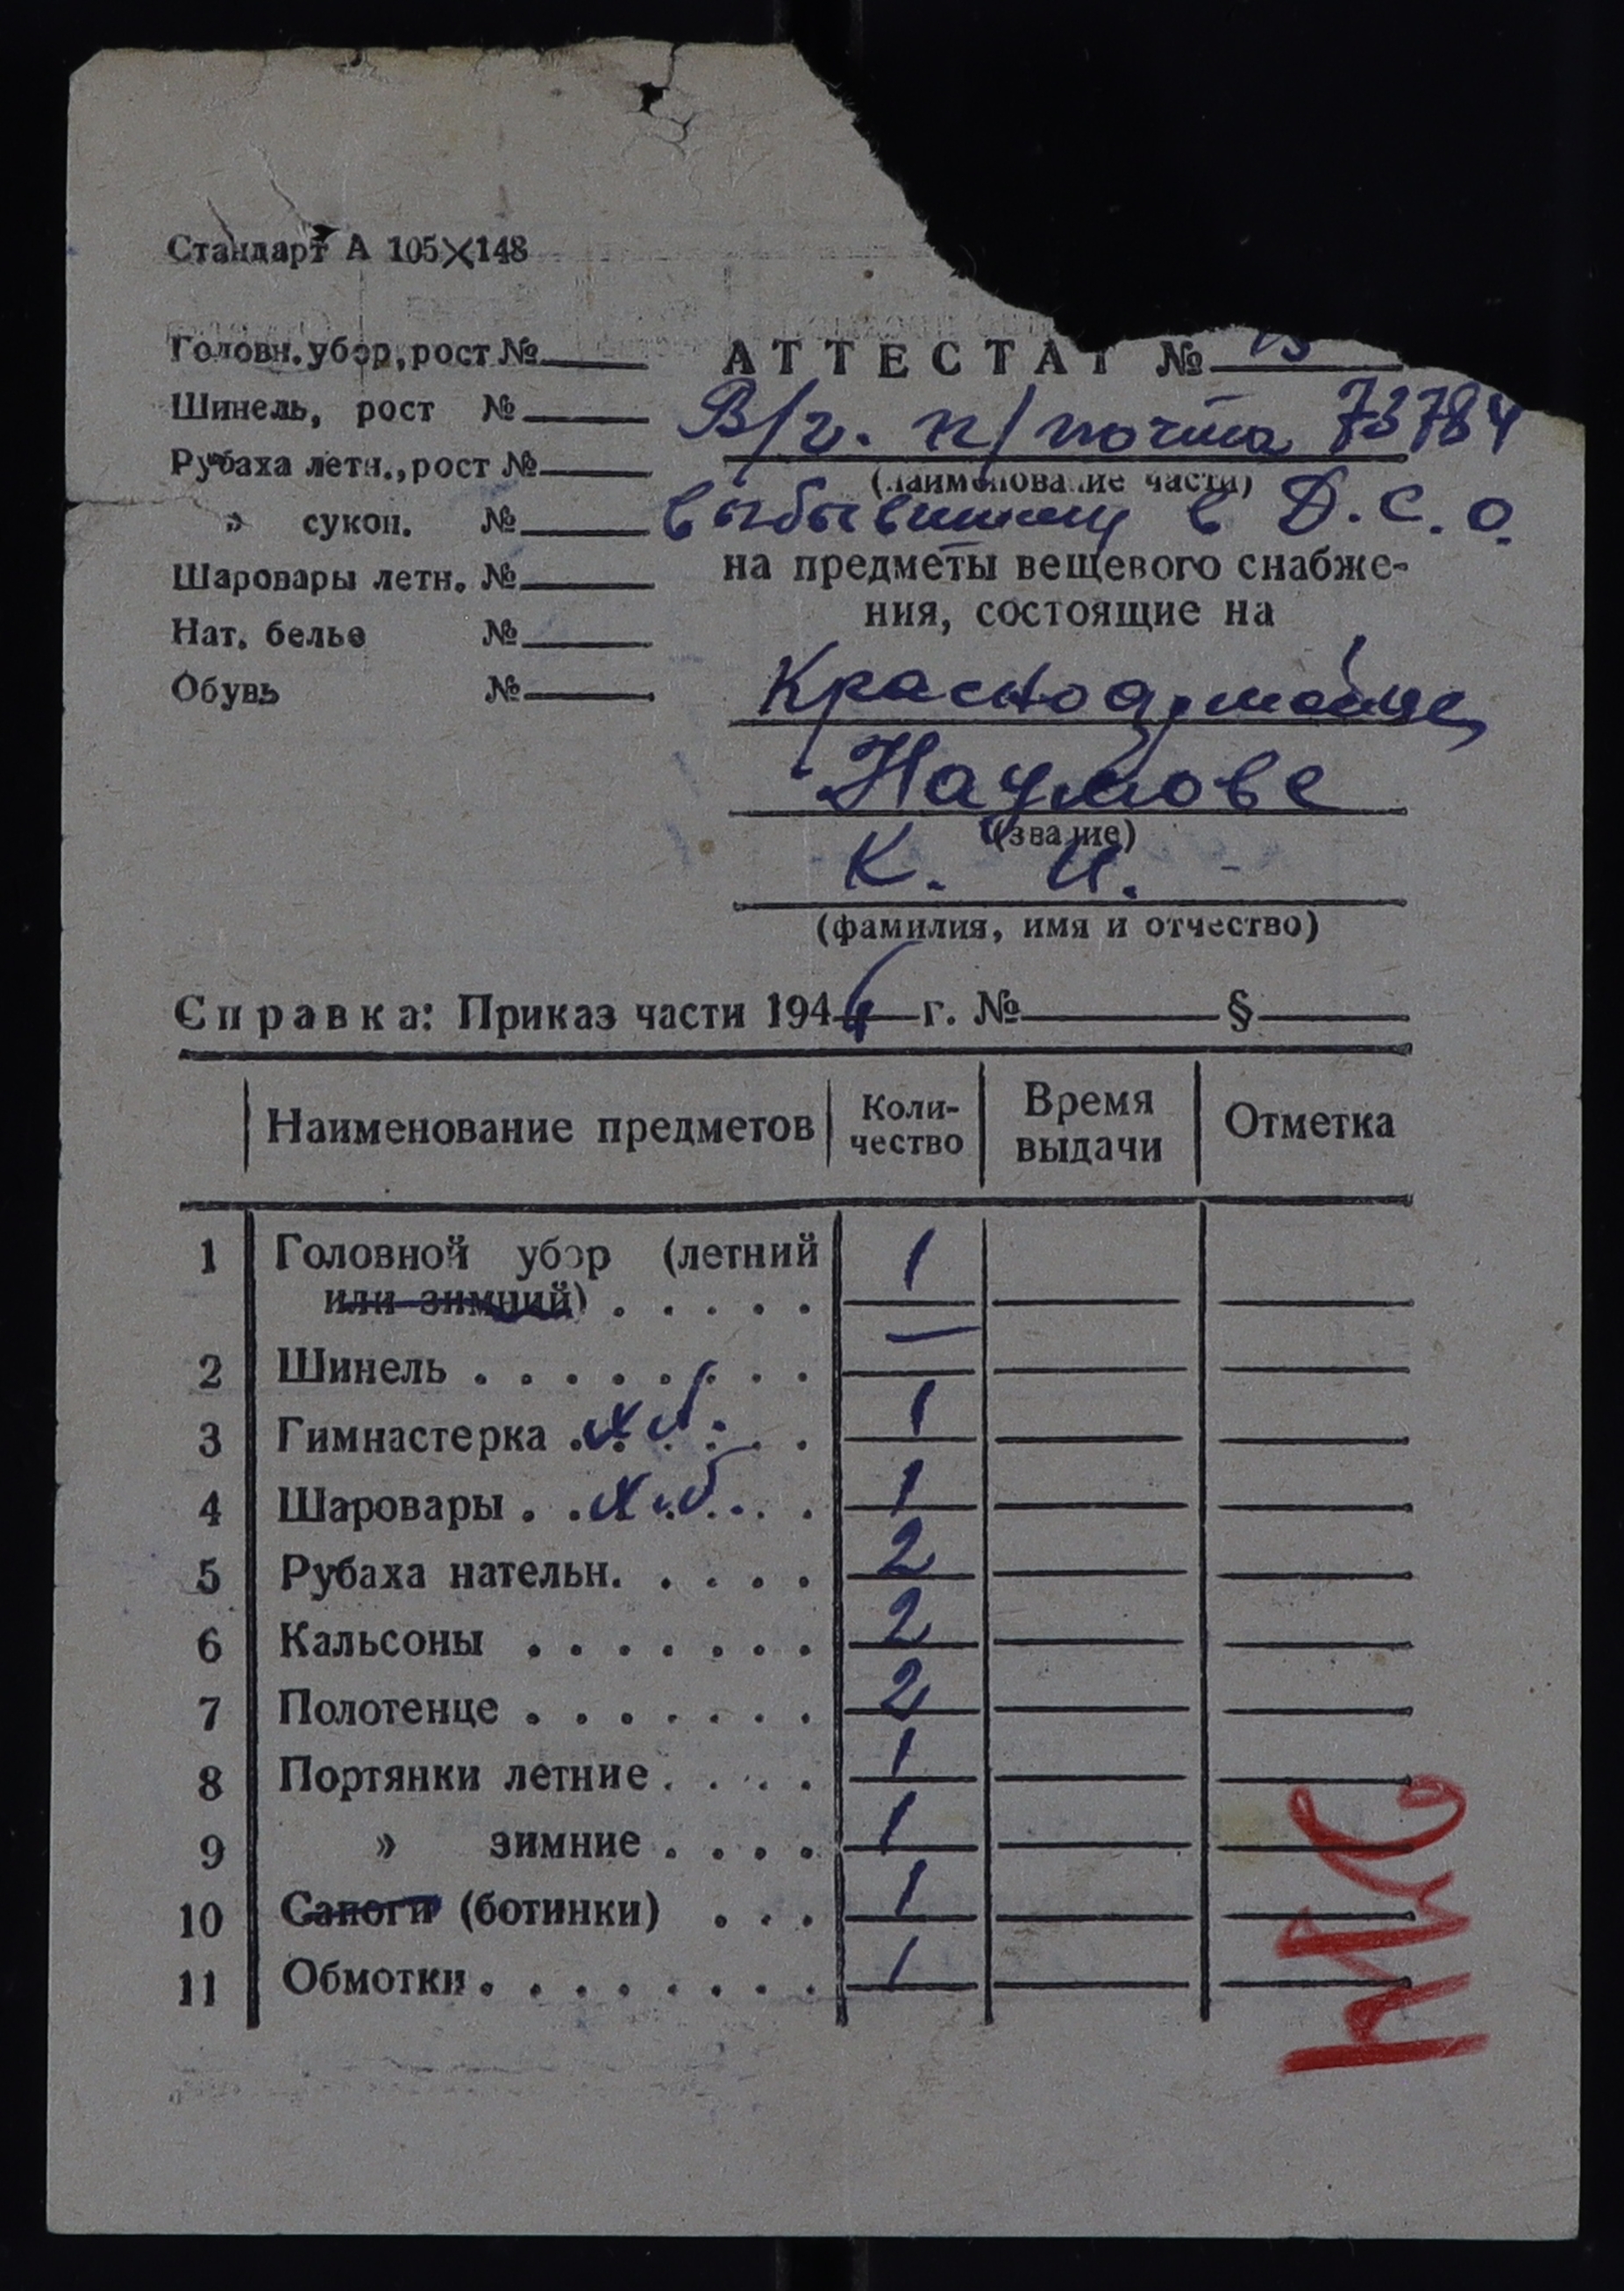 Стандарт А 105×148
Головн. убор, рост №
Шинель, рост №
Рубаха летн., рост №
» сукон. №
Шаровары летн. №
Нат. белье №
Обувь №
АТТЕСТАТ №
В/ч. п/почта 73784
(наименование части)
выбывшему в Д.С.О.
на предметы вещевого снабже-
ния, состоящие на
Красноармейце
Наумове
(звание)
К. И.
(фамилия, имя и отчество)
Справка: Приказ части 1946 г. № §
Наименование предметов Коли-чество Время выдачи Отметка
1 Головной убор (летний 1
или зимний) . . . . .
2 Шинель . . . . . . . . —
3 Гимнастерка х.б. 1
4 Шаровары х.б. 1
5 Рубаха нательн. . . . . 2
6 Кальсоны . . . . . . . 2
7 Полотенце . . . . . . . 2
8 Портянки летние . . . . 1
9 » зимние . . . . 1
10 Сапоги (ботинки) . . . 1
11 Обмотки . . . . . . . . 1